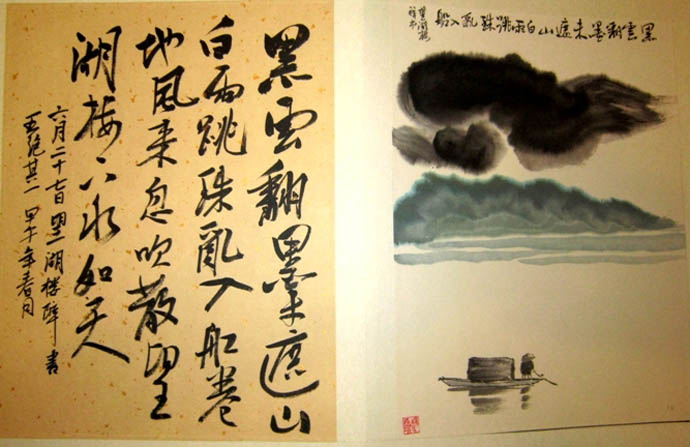 黑雲翻墨未遮山
白雨跳珠亂入船卷
地風来忽吹散望
湖楼下水如天
六月二十七日望湖楼醉書
五绝其一 甲午年春月
黑雲翻墨未遮山白雨跳珠亂入船
望湖楼